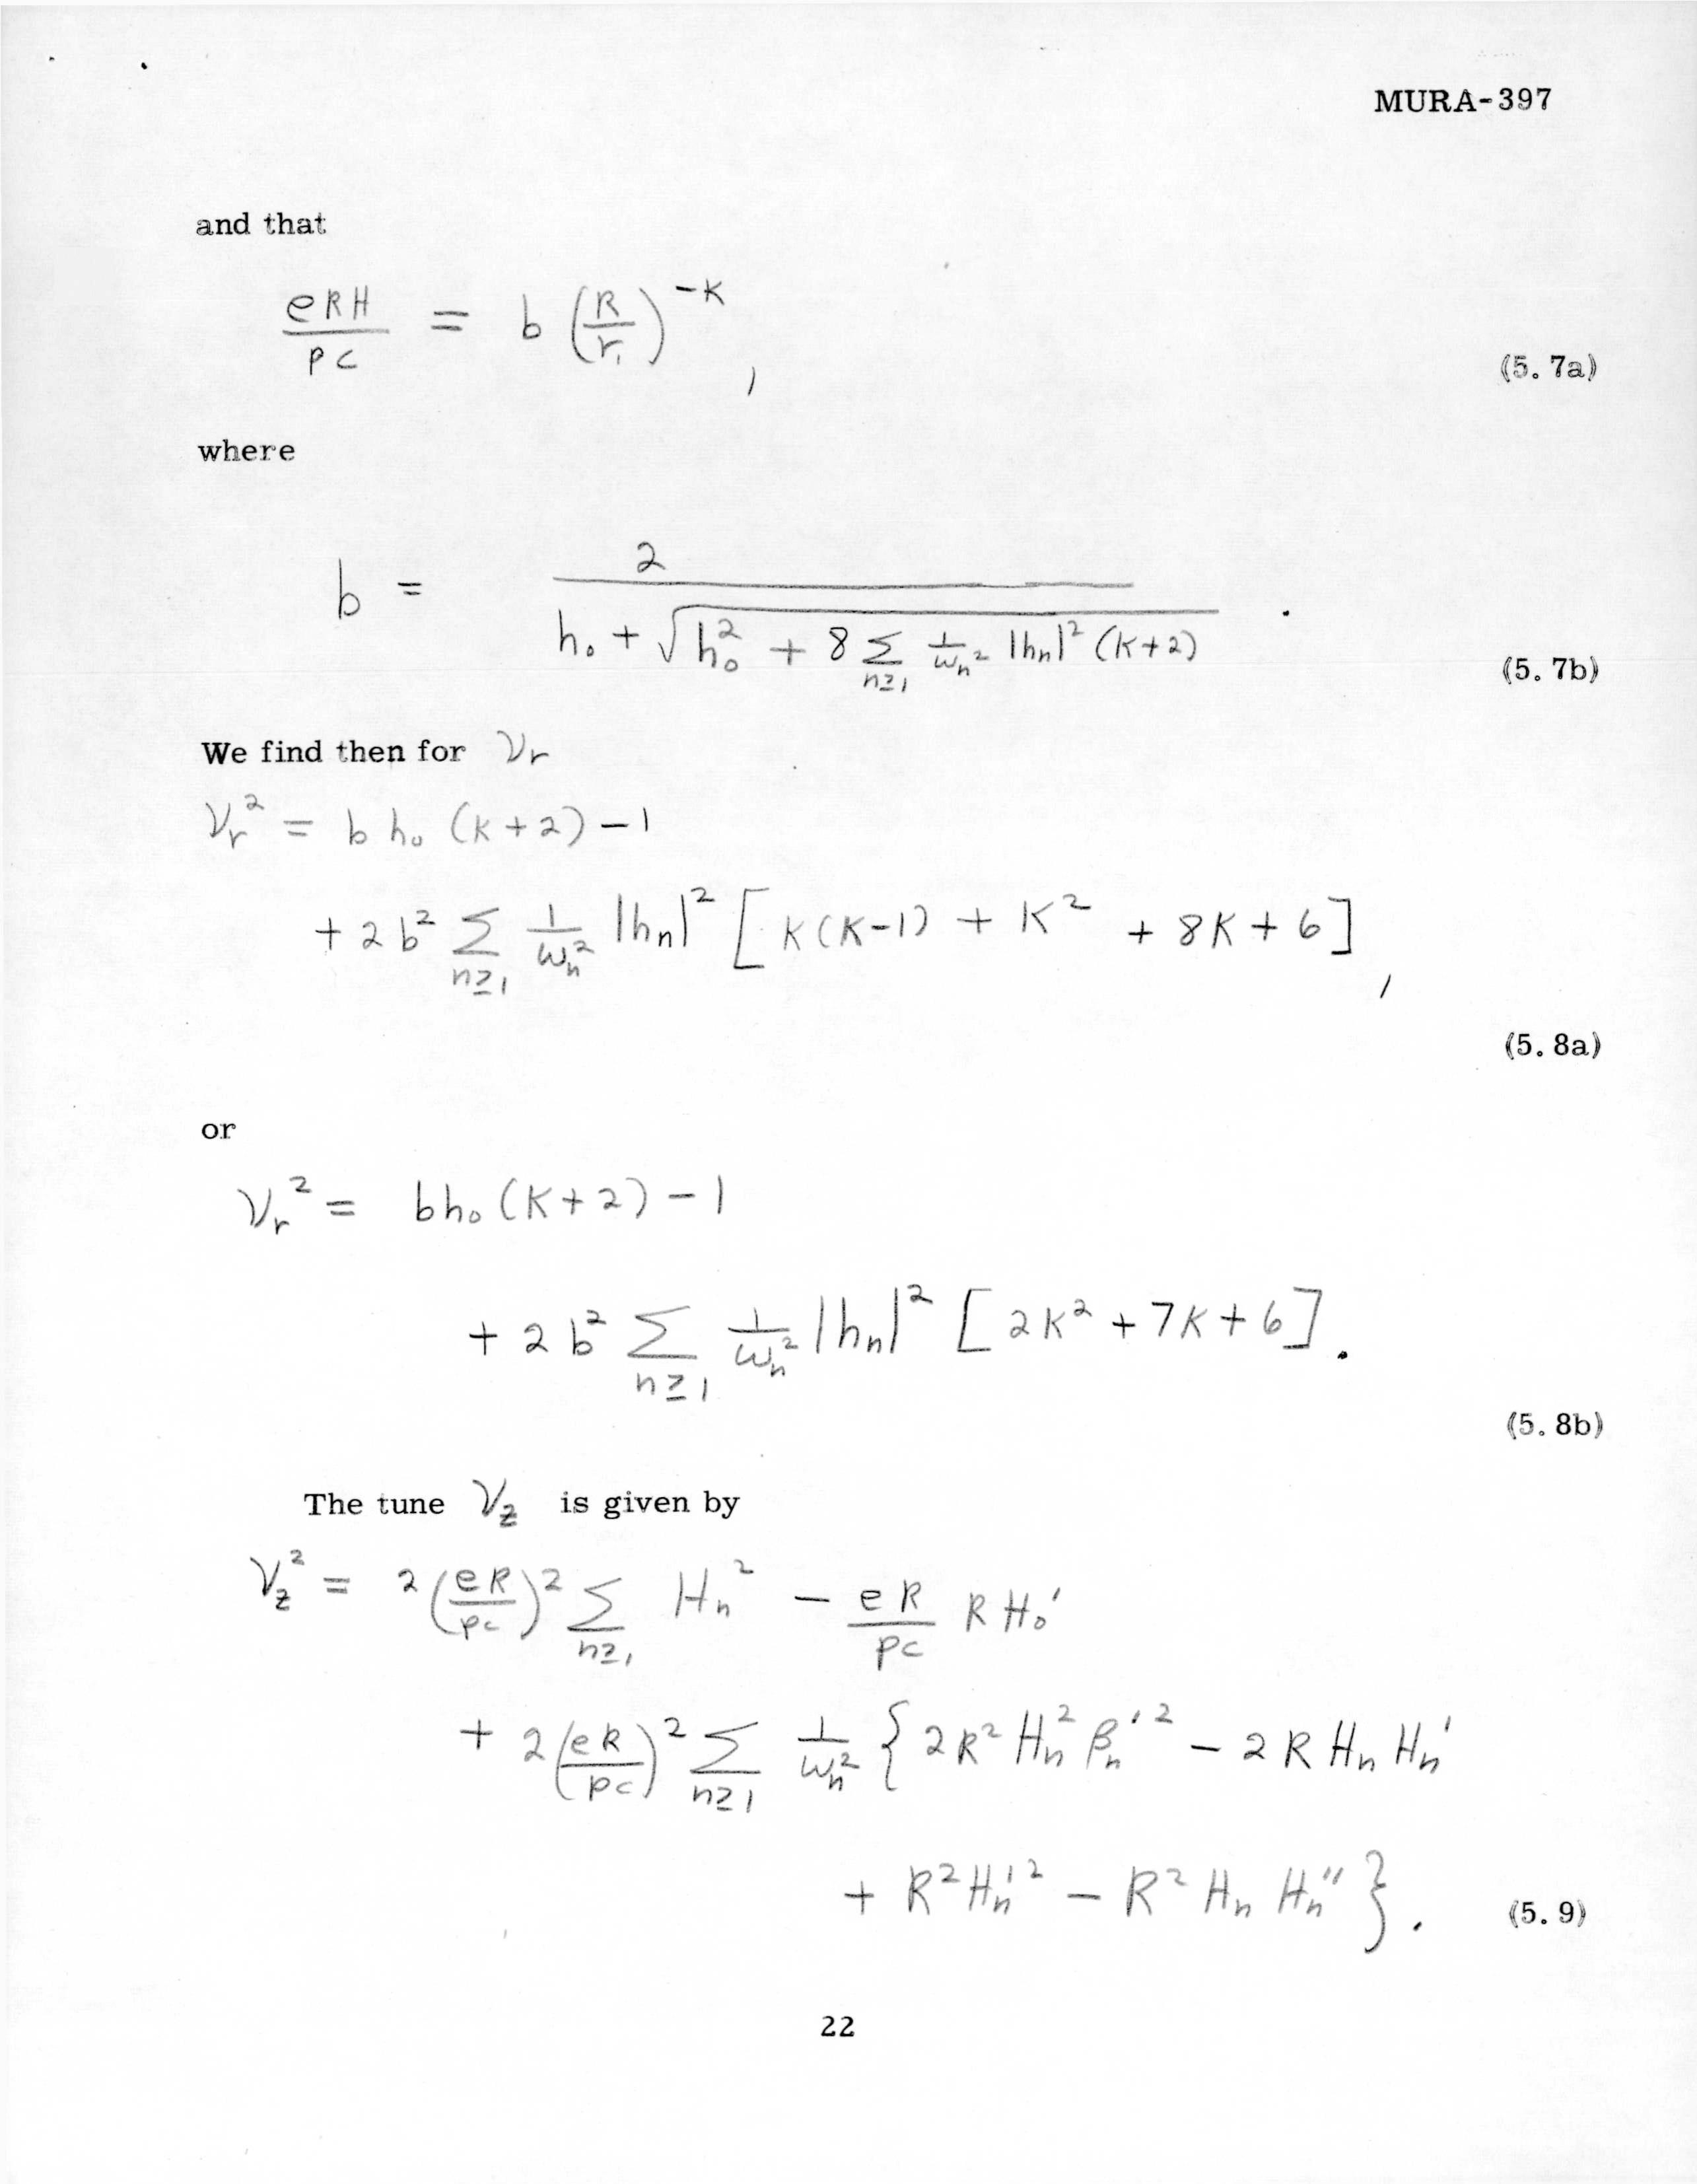 MURA-397
and that
\frac{eRH}{pc} = b \left(\frac{R}{r_1}\right)^{-K} ,
(5.7a)
where
b = \frac{2}{h_0 + \sqrt{h_0^2 + 8 \sum_{n \geq 1} \frac{1}{\omega_n^2} |h_n|^2 (K+2)}} .
(5.7b)
We find then for ν_r
ν_r^2 = b h_0 (K+2) - 1
+ 2 b^2 \sum_{n \geq 1} \frac{1}{\omega_n^2} |h_n|^2 [ K(K-1) + K^2 + 8K + 6 ] ,
(5.8a)
or
ν_r^2 = b h_0 (K+2) - 1
+ 2 b^2 \sum_{n \geq 1} \frac{1}{\omega_n^2} |h_n|^2 [ 2K^2 + 7K + 6 ] .
(5.8b)
The tune ν_z is given by
ν_z^2 = 2 \left(\frac{eR}{pc}\right)^2 \sum_{n \geq 1} H_n^2 - \frac{eR}{pc} R H_0'
+ 2 \left(\frac{eR}{pc}\right)^2 \sum_{n \geq 1} \frac{1}{\omega_n^2} \{ 2R^2 H_n^2 β_n'^2 - 2 R H_n H_n'
+ R^2 H_n'^2 - R^2 H_n H_n'' \} . (5.9)
22